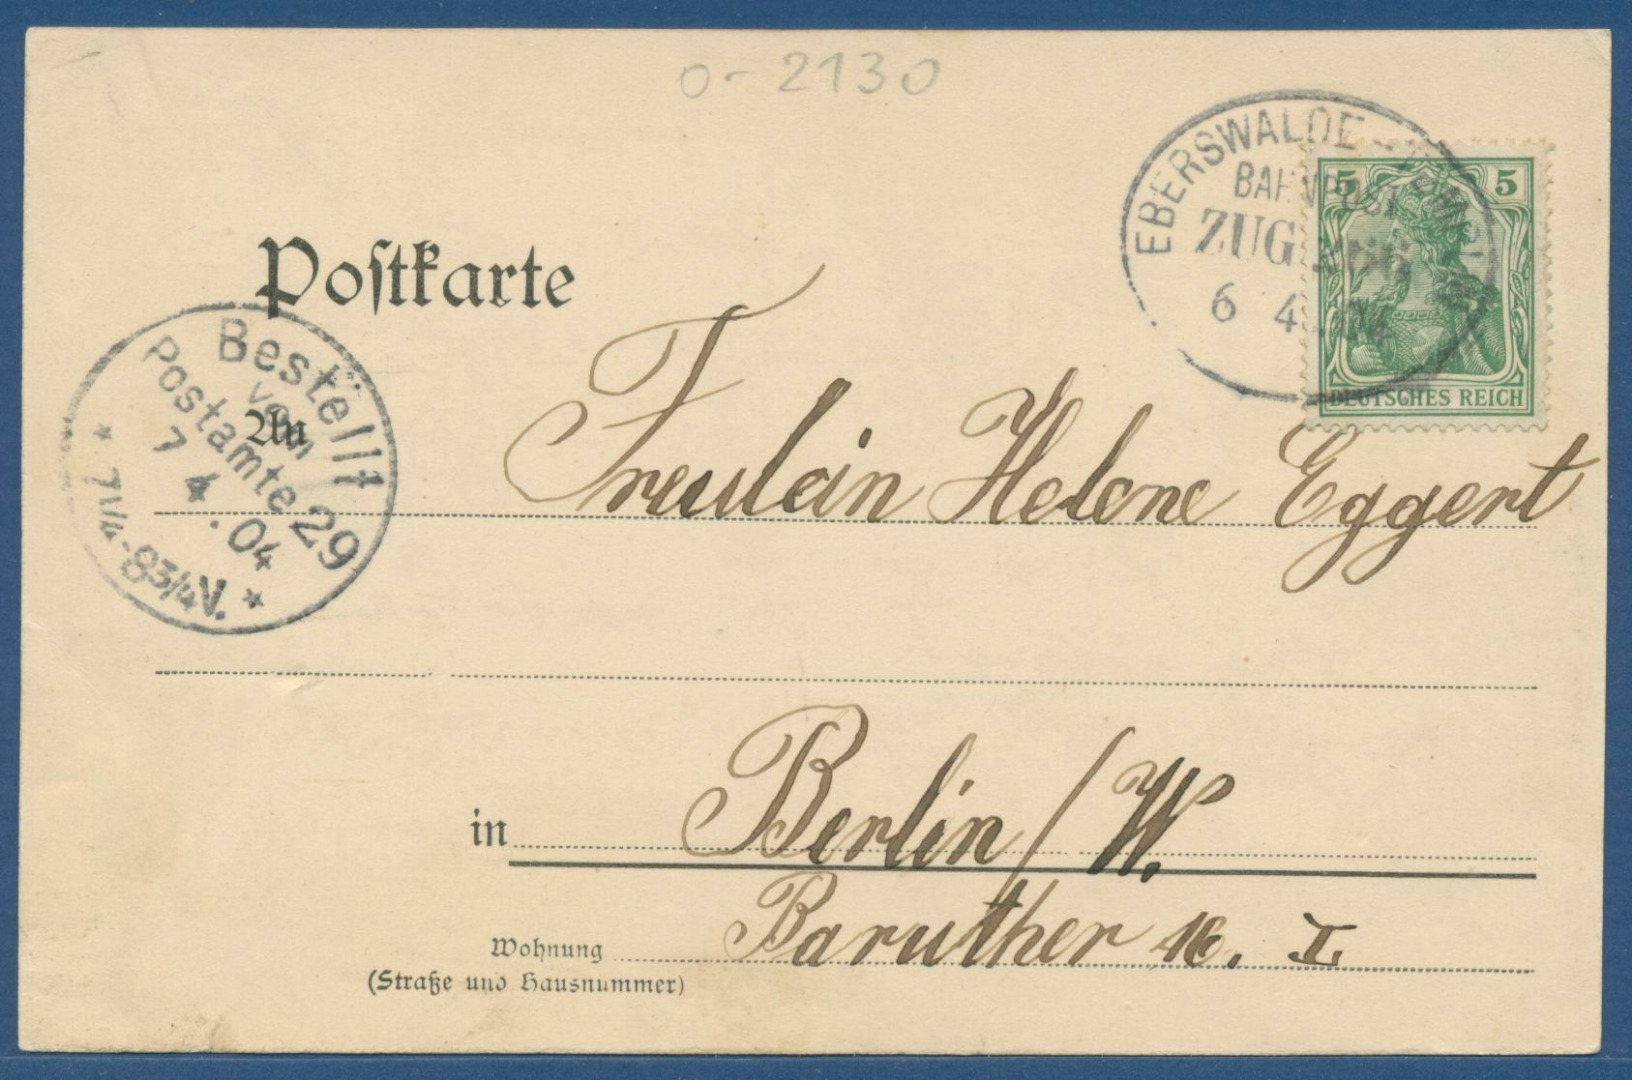 0-2130
EBERSWALDE
BAHNPOST
ZUG
6 4
5 5
DEUTSCHES REICH
Postkarte
Bestellt
vom
Postamte 29
7 4.04
* 7 1/4-8 3/4 V. *
An
Freulein Helene Eggert
in Berlin/W.
Wohnung Baruther 16. I
(Straße und Hausnummer)